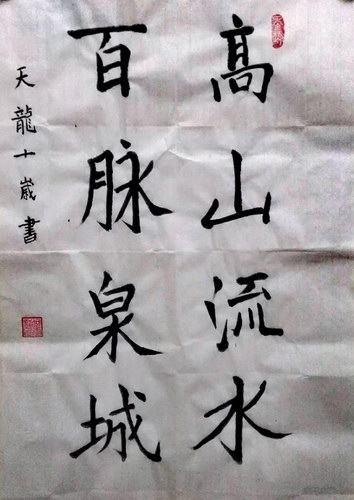 髙山流水
百脉泉城
天龍十歲書